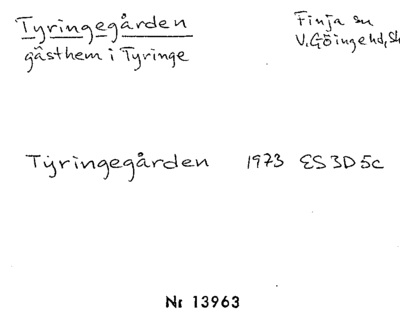 Tyringegården
gästhem i Tyringe
Finja sn
V. Göinge hd, Sk
Tyringegården 1973 ES 3D5c
Nr 13963